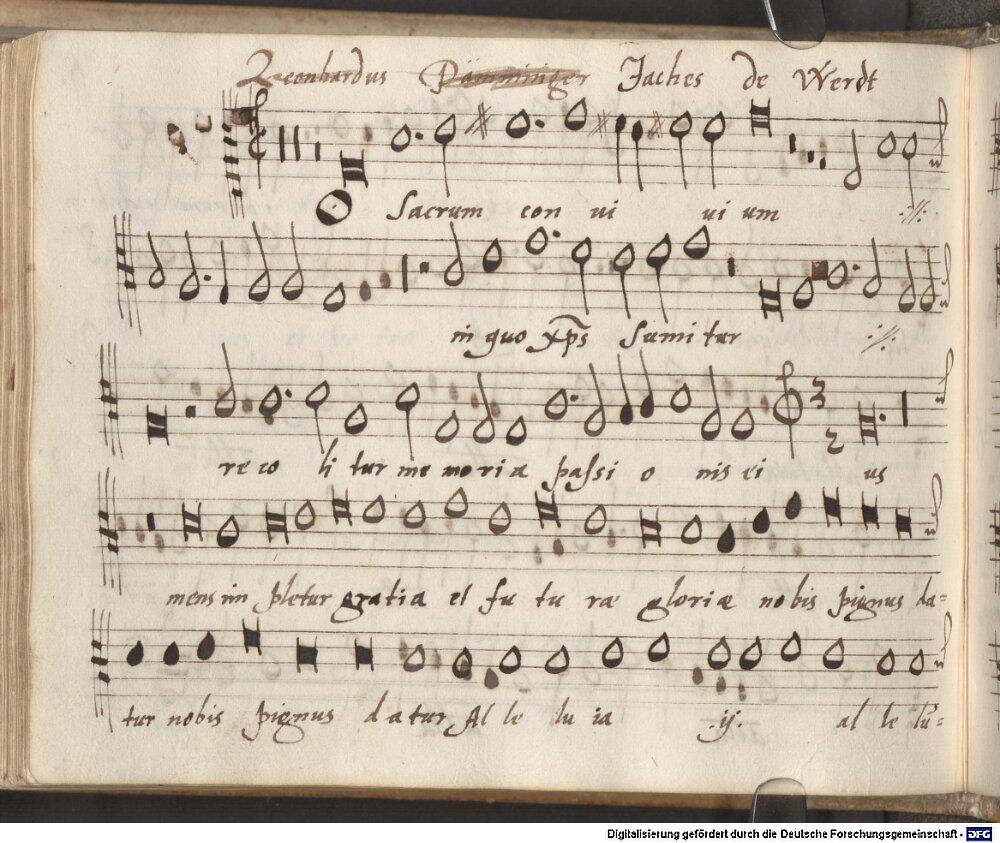 Leonhardus Päminger Jaches de Werdt
Sacrum con vi vi um ://:
in quo xp̃s Sumi tur :://:
re co li tur me moria passi o nis ei us
mens im pletur gratia et fu tu ræ gloriæ nobis pignus da=
tur nobis pignus datur Al le lu ia .ij. al le lu=
Digitalisierung gefördert durch die Deutsche Forschungsgemeinschaft - DFG